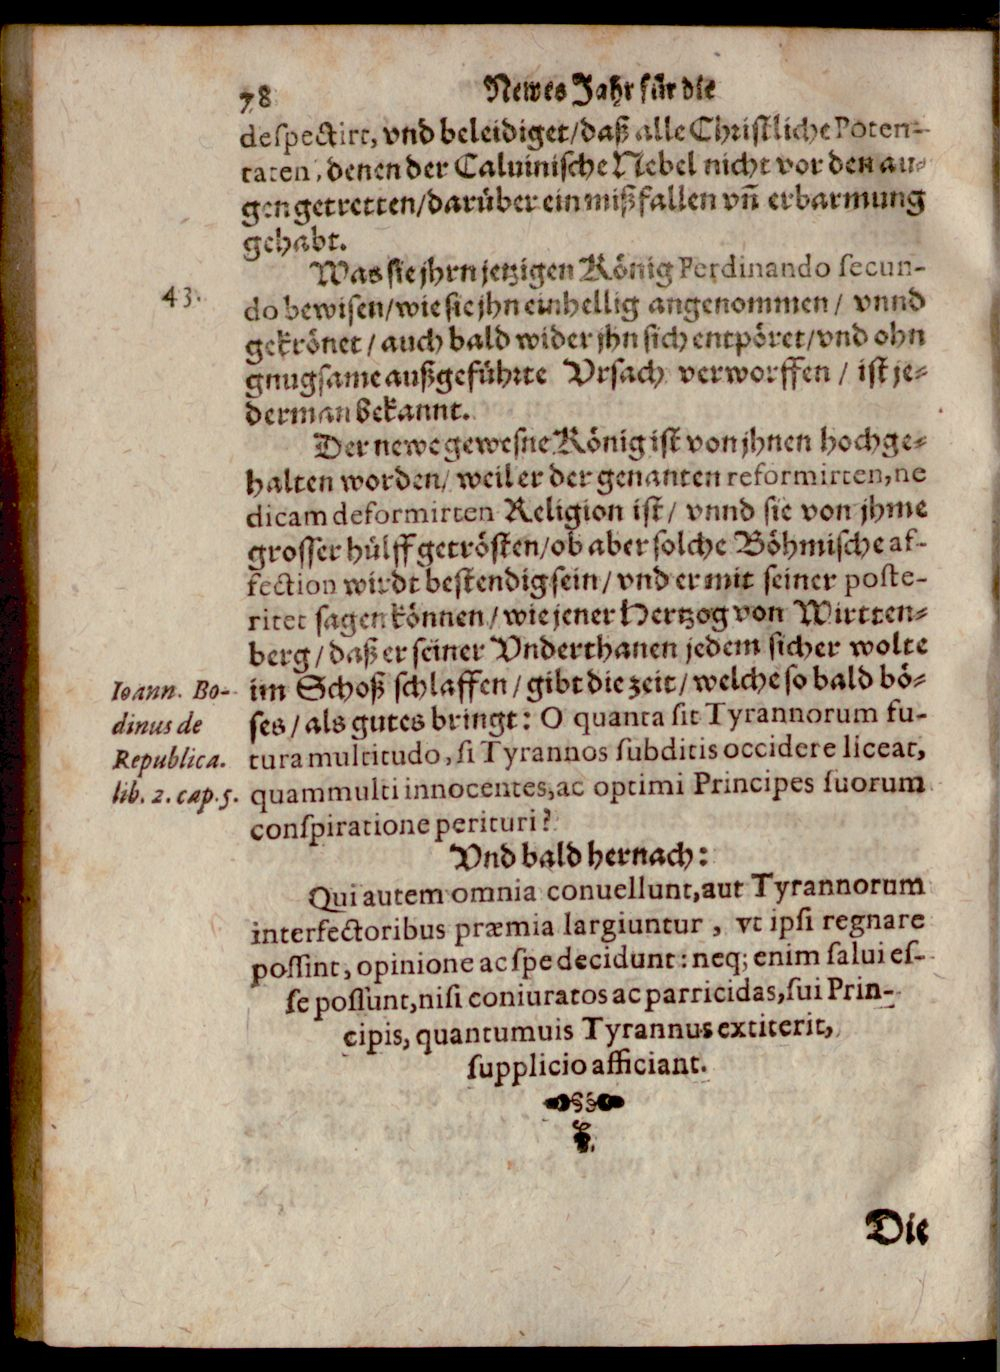 78 Newes Jahr für die
deſpectirt, vnd beleidiget/daß alle Chriſtliche Poten-
taten, denen der Caluiniſche Nebel nicht vor den au-
gen getretten/darüber ein mißfallen vñ erbarmung
gehabt.
Was ſie jhrn jetzigen König Ferdinando ſecun-
43.
do bewiſen/wie ſie jhn einhellig angenommen/ vnnd
gekrönet/ auch bald wider jhn ſich entpöret/vnd ohn
gnugſame außgeführte Vrſach verworffen/ iſt je-
derman bekannt.
Der newe geweſne König iſt von jhnen hochge-
halten worden/ weil er der genanten reformirten, ne
dicam deformirten Religion iſt/ vnnd ſie von jhme
groſſer hülff getröſten/ob aber ſolche Böhmiſche af-
fection wirdt beſtendig ſein/ vnd er mit ſeiner poſte-
ritet ſagen können/ wie jener Hertzog von Wirtten-
berg/ daß er ſeiner Vnderthanen jedem ſicher wolte
im Schoß ſchlaffen/ gibt die zeit/ welche ſo bald bö-
ſes/ als gutes bringt: O quanta ſit Tyrannorum fu-
tura multitudo, ſi Tyrannos ſubditis occidere liceat,
quam multi innocentes, ac optimi Principes ſuorum
conſpiratione perituri?
Ioann. Bo-
dinus de
Republica.
lib. 2. cap. 5.
Vnd bald hernach:
Qui autem omnia conuellunt, aut Tyrannorum
interfectoribus præmia largiuntur, vt ipſi regnare
poſſint, opinione ac ſpe decidunt: neq; enim ſalui eſ-
ſe poſſunt, niſi coniuratos ac parricidas, ſui Prin-
cipis, quantumuis Tyrannus extiterit,
ſupplicio afficiant.
Die